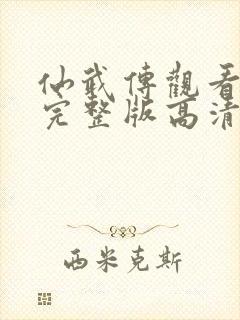 仙武傳觀看
完整版高清
西米克斯